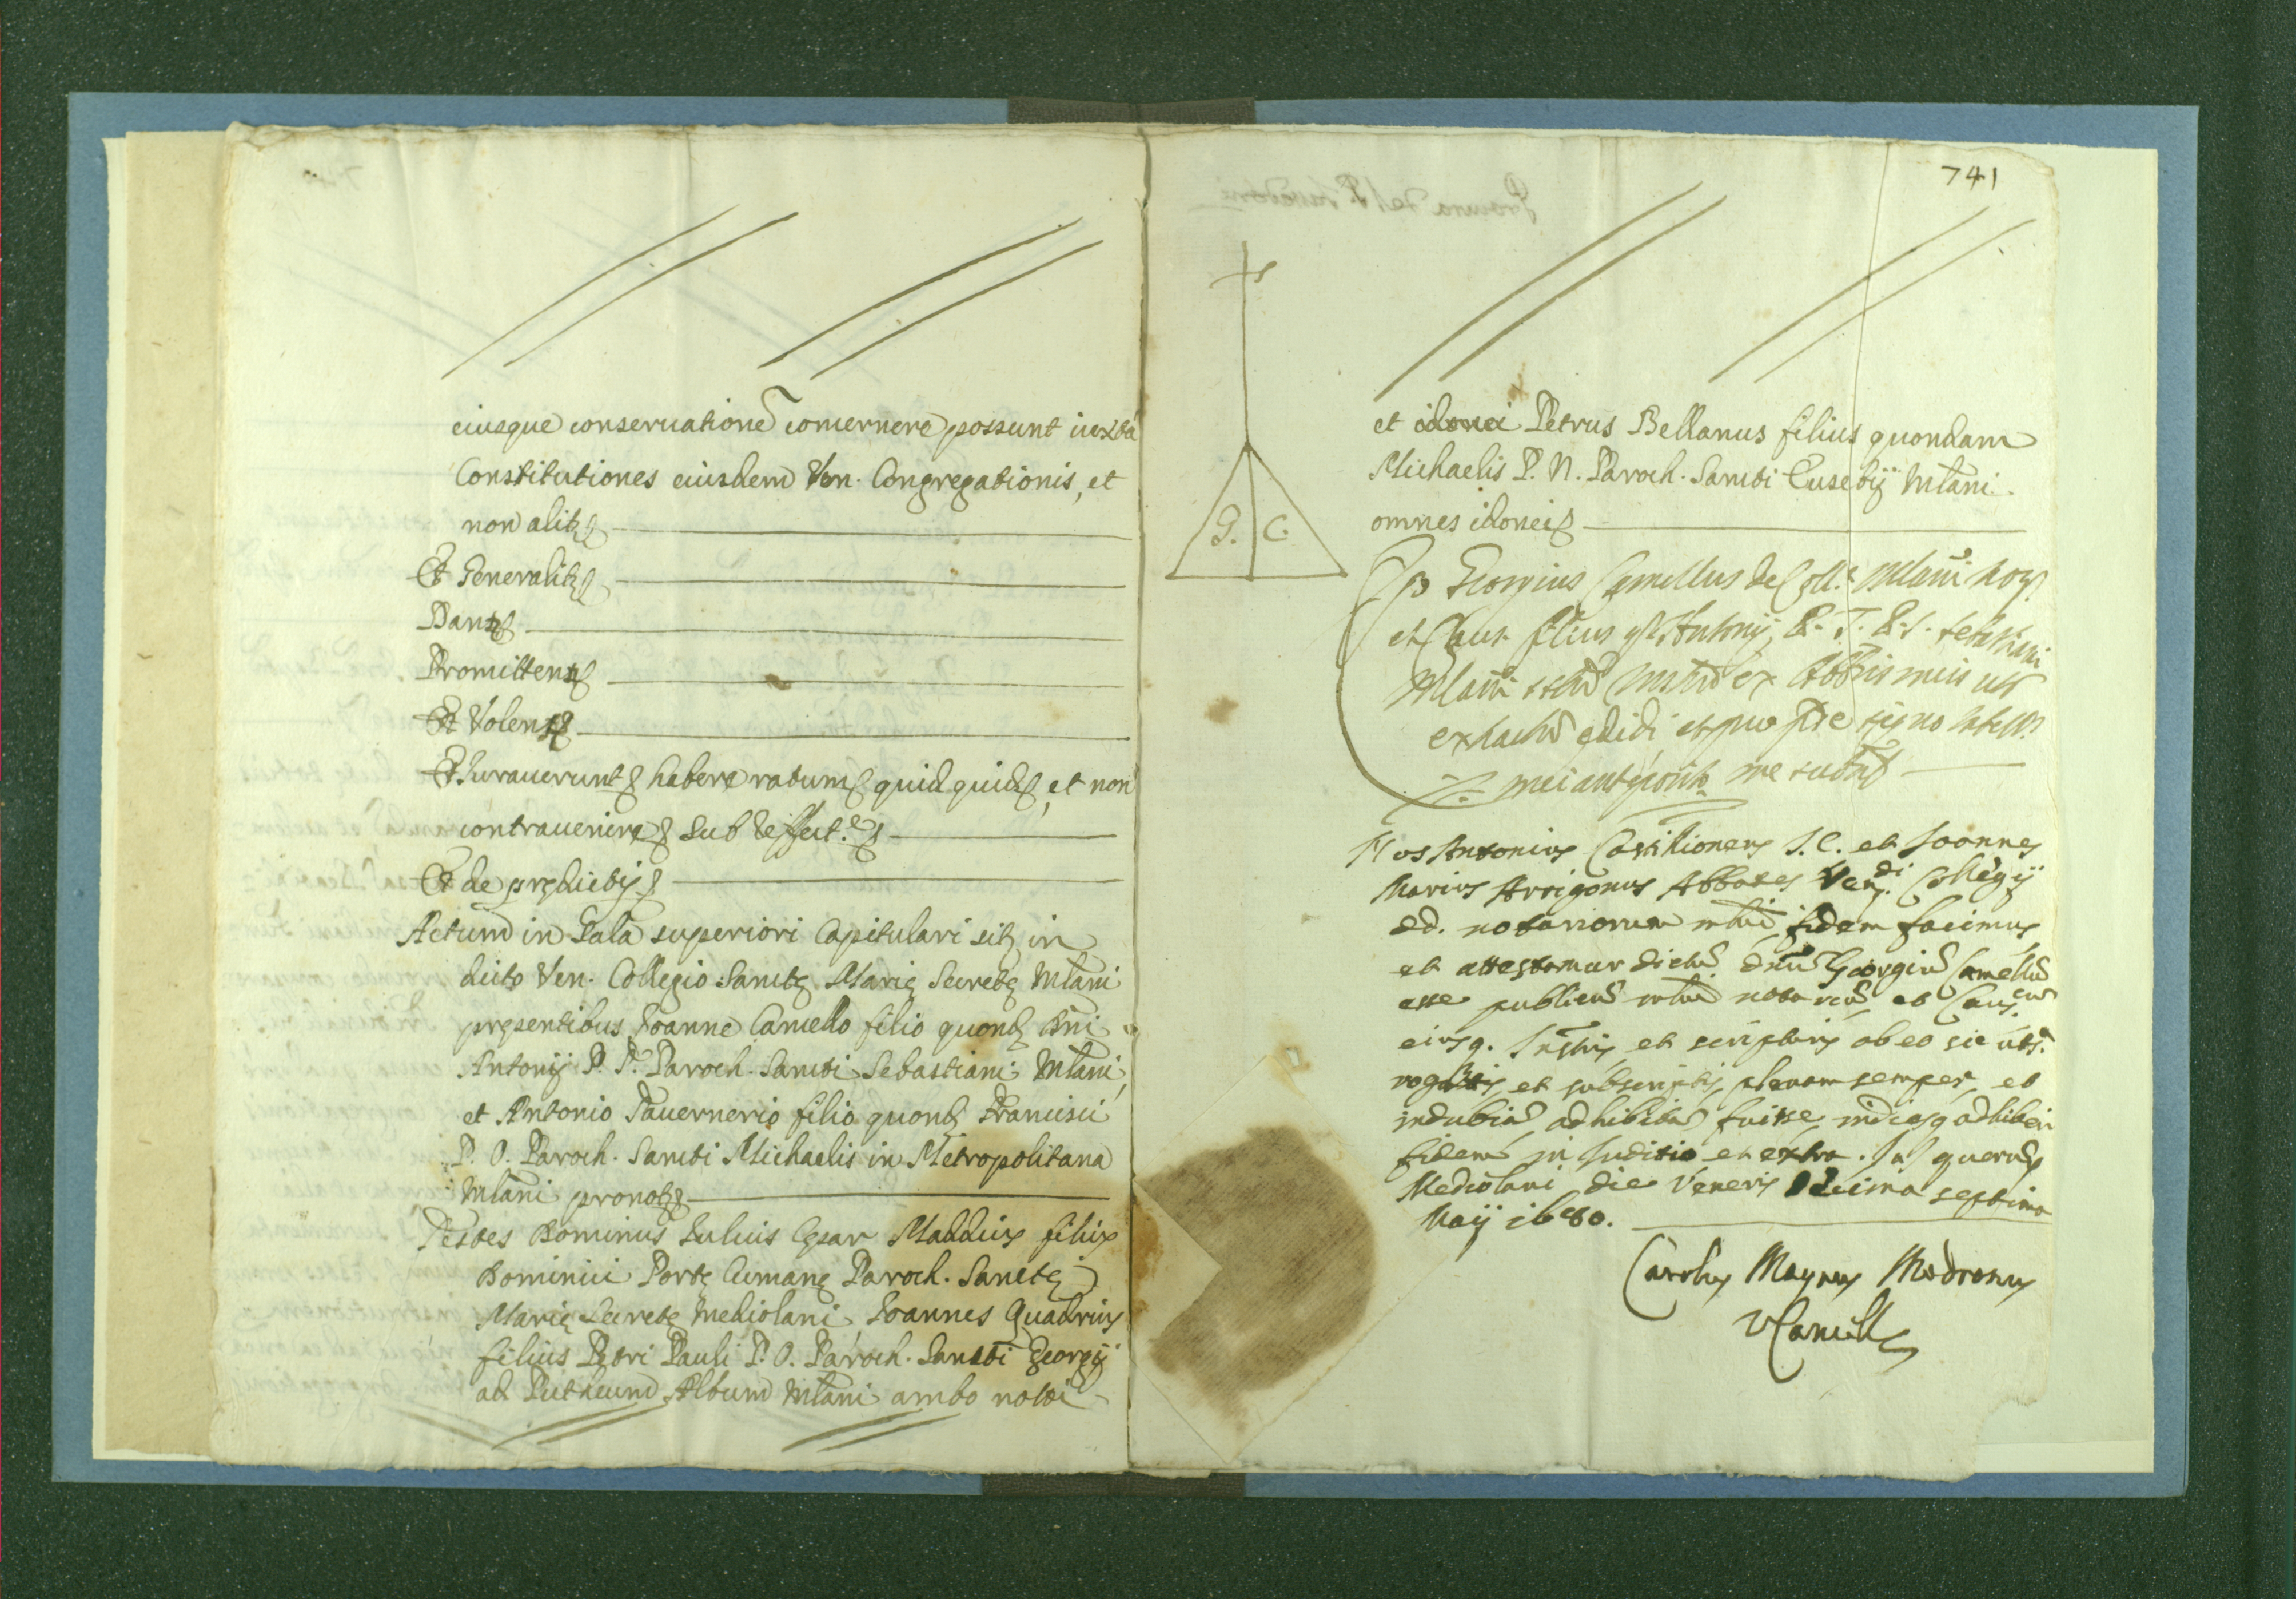 eiusque conseruatione concernere possunt iuxta
Constitutiones eiusdem Ven. Congregationis, et
non alitr
Et Generalitr
Dantes
Promittens
Et Volens
Et Iurauerunt habere ratum quidquid, et non
contrauenire sub refect.e
Et de prędictis
Actum in Sala superiori Capitulari sit. in
dicto Ven. Collegio Sanctę Marię Secretę Mlani
pręsentibus Ioanne Camello filio quond. Dni
Antonij P. T. Paroch. Sancti Sebastiani Mlani,
et Antonio Tauernerio filio quond. Francisci
P. O. Paroch. Sancti Michaelis in Metropolitana
Mlani pronot.
Testes Dominus Iulius Cęsar Maddius filius
Dominici Portę Cumanę Paroch. Sanctę
Marię Secretę Mediolani Ioannes Quadrius
filius Petri Pauli P. O. Paroch. Sancti Georgij
ad Puteum Album Mlani ambo noti
741
et idonei Petrus Bellanus filius quondam
Michaelis P. N. Paroch. Sancti Eusebij Mlani
omnes idonei
G. C.
Ego Georgius Camellus de Coll.o Mlani Not.
et Caus. filius qd. Antonij, P. T. P. S. Sebastiani
Mlani Instrum ex Abbris meis ut
extractum edidi et pro fide signo tabell.
mei anteposito me subscr.
Nos Antonius Castilioneus I. C. et Ioannes
Marius Arrigonus Abbates Ven.di Collegij
DD. notariorum mlni fidem facimus
et attestamur dictum dnum Georgium Camellum
esse publicum mlni notarium et Caus.cum
eiusq. Instris et scripturis ab eo sic uts.a
rogatis et subscriptis plenam semper, et
indubiam adhibitam fuisse, indiesq adhiberi
fidem in Iuditio et extra. In quorum
Mediolani die Veneris Decima septima
Maij 1680.
Carolus Magnus Modronus
VCancell.s